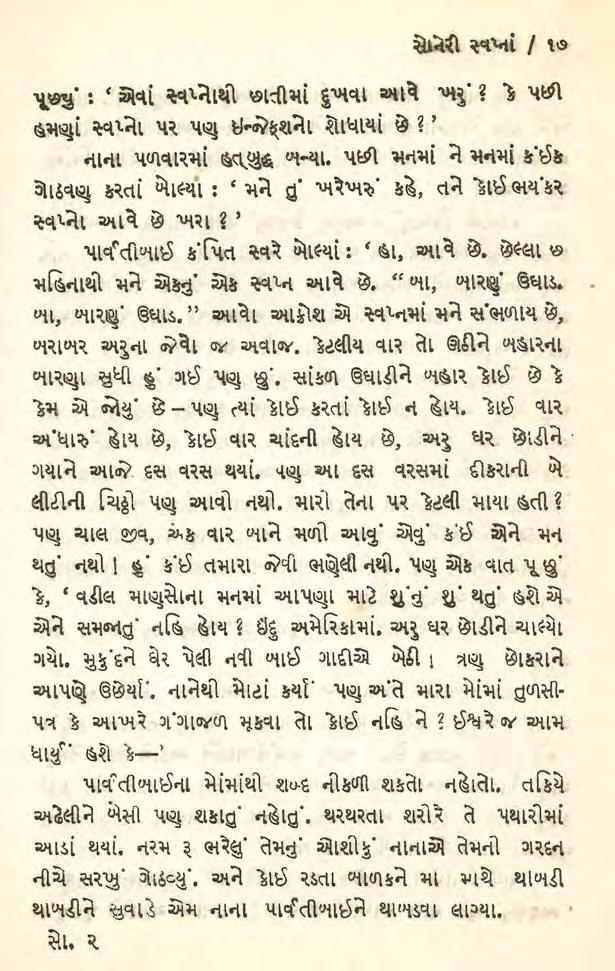 સોનેરી સ્વપ્નાં / ૧૭
પૂછ્યું : ‘ એવાં સ્વપ્નોથી છાતીમાં દુખવા આવે ખરું ? કે પછી
હમણાં સ્વપ્નો પર પણ ઇન્જેક્શનો શોધાયાં છે ? ’
નાના પળવારમાં હતબુદ્ધ બન્યા. પછી મનમાં ને મનમાં કંઈક
ગોઠવણ કરતાં બોલ્યા : ‘ મને તું ખરેખરું કહે, તને કોઈ ભયંકર
સ્વપ્નો આવે છે ખરા ? ’
પાર્વતીબાઈ કંપિત સ્વરે બોલ્યાં : ‘ હા, આવે છે. છેલ્લા છ
મહિનાથી મને એકનું એક સ્વપ્ન આવે છે. “ બા, બારણું ઉઘાડ.
બા, બારણું ઉઘાડ. ” આવો આક્રોશ એ સ્વપ્નમાં મને સંભળાય છે,
બરાબર અરુના જેવો જ અવાજ. કેટલીય વાર તો ઊઠીને બહારના
બારણા સુધી હું ગઈ પણ છું. સાંકળ ઉઘાડીને બહાર કોઈ છે કે
કેમ એ જોયું છે – પણ ત્યાં કોઈ કરતાં કોઈ ન હોય. કોઈ વાર
અંધારું હોય છે, કોઈ વાર ચાંદની હોય છે, અરુ ઘર છોડીને
ગયાને આજે દસ વરસ થયાં. પણ આ દસ વરસમાં દીકરાની બે
લીટીની ચિઠ્ઠી પણ આવી નથી. મારી તેના પર કેટલી માયા હતી ?
પણ ચાલ જીવ, એક વાર બાને મળી આવું એવું કંઈ એને મન
થતું નથી ! હું કંઈ તમારા જેવી ભણેલી નથી. પણ એક વાત પૂછું
કે, ‘ વડીલ માણસોના મનમાં આપણા માટે શુંનું શું થતું હશે એ
એને સમજાતું નહિ હોય ? ઇંદુ અમેરિકામાં. અરુ ઘર છોડીને ચાલ્યો
ગયો. મુકુંદને ઘેર પેલી નવી બાઈ ગાદીએ બેઠી ! ત્રણ છોકરાને
આપણે ઉછેર્યાં. નાનેથી મોટાં કર્યાં પણ અંતે મારા મોંમાં તુળસી-
પત્ર કે આખરે ગંગાજળ મૂકવા તો કોઈ નહિ ને ? ઈશ્વરે જ આમ
ધાર્યું હશે કે—’
પાર્વતીબાઈના મોંમાંથી શબ્દ નીકળી શકતો નહોતો. તકિયે
અઢેલીને બેસી પણ શકાતું નહોતું. થરથરતા શરીરે તે પથારીમાં
આડાં થયાં. નરમ રૂ ભરેલું તેમનું ઓશીકું નાનાએ તેમની ગરદન
નીચે સરખું ગોઠવ્યું. અને કોઈ રડતા બાળકને મા માથે થાબડી
થાબડીને સુવાડે એમ નાના પાર્વતીબાઈને થાબડવા લાગ્યા.
સો. ૨